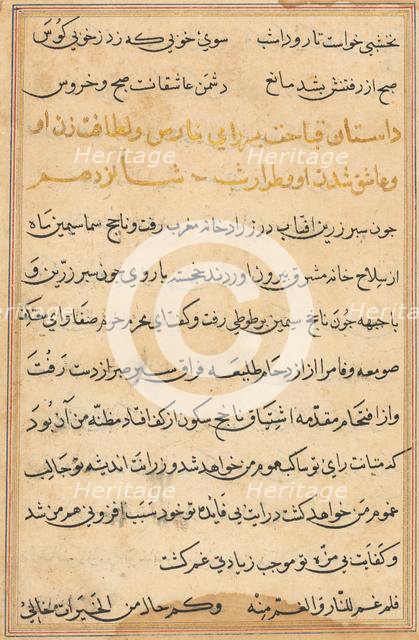 نخشبی خواست تا رود امشب سوی خوبی که زد ز خوبی کوس
صبح از رفتنش بشد مانع دشمن عاشقانت صبح و خروس
داستان قباحت رای و لطافت زن او
و عاشق شدن او شب شانزدهم
چون سپر زرین افتاب در زراد خانه مغرب رفت و ناچخ سیمین ماه
از سلاح خانه مشرق بیرون اوردند خجسته با روی چون سپر زرین و
با جبهه چون ناچخ سیمین بر طوطی رفت و کفت ای محرم حرم صفا و ای
صومعه وفا مرا از ازدحام طلیعه فراق سپر صبر از دست رفت
و از اقتحام مقدمه اشتیاق ناچخ سکون از کف افتاد مظنه من آن بود
که متانت رای تو ساکب هموم من خواهد شد و زرانت اندیشه تو جالب
غموم من خواهد کشت درایت بی فایده تو خود سبب افزونی هم من شد
و کفایت بی مزه تو موجب زیادتی غم کشت
Heritage
Heritage
Heritage
Heritage
Heritage
Heritage
Heritage
Heritage
©